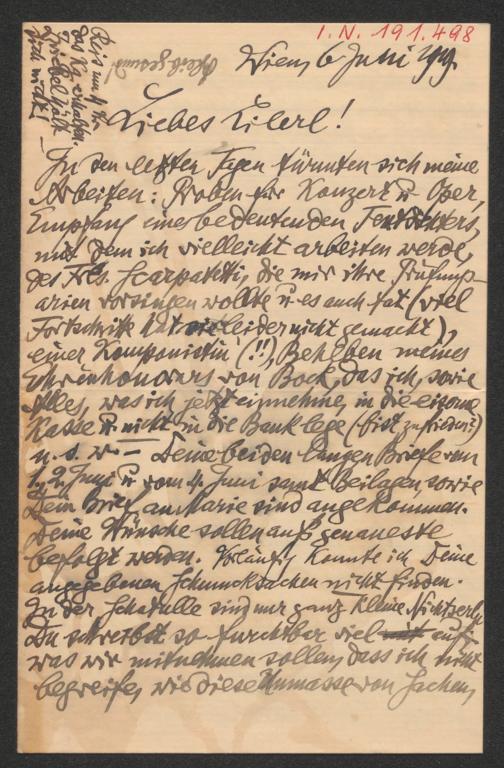 I.N. 191.498
Wien, 6. Juni 1919.
Bleib gesund!
Reis um 4 K.
das Kg. erhalten.
Zwiebel hält
sich nicht! —
Liebes Lilerl!
In den letzten Tagen türmten sich meine
Arbeiten: Proben für Konzert u. Oper,
Empfang eines bedeutenden Textdichters,
mit dem ich vielleicht arbeiten werde,
des Frls. Scarpatetti, die mir ihre Prüfungs-
arien vorsingen wollte u. es auch tat (viel
Fortschritte hat sie leider nicht gemacht),
einer Komponistin (!!), Beheben meines
Ehrenhonorars von Bock, das ich, sowie
Alles, was ich jetzt einnehme, in die eiserne
Kasse u. nicht in die Bank lege (bist zufrieden?)
u. s. w. — Deine beiden langen Briefe vom
1., 2. Juni u. vom 4. Juni samt Beilagen, sowie
Dein Brief an Marie sind angekommen.
Deine Wünsche sollen aufs genaueste
befolgt werden. Vorläufig konnte ich Deine
angegebenen Schmucksachen nicht finden.
In der Schatulle sind nur ganz kleine Nichtserln
Du schreibst so furchtbar viel auf,
was wir mitnehmen sollen, dass ich nicht
begreife, wie diese Unmasse von Sachen,